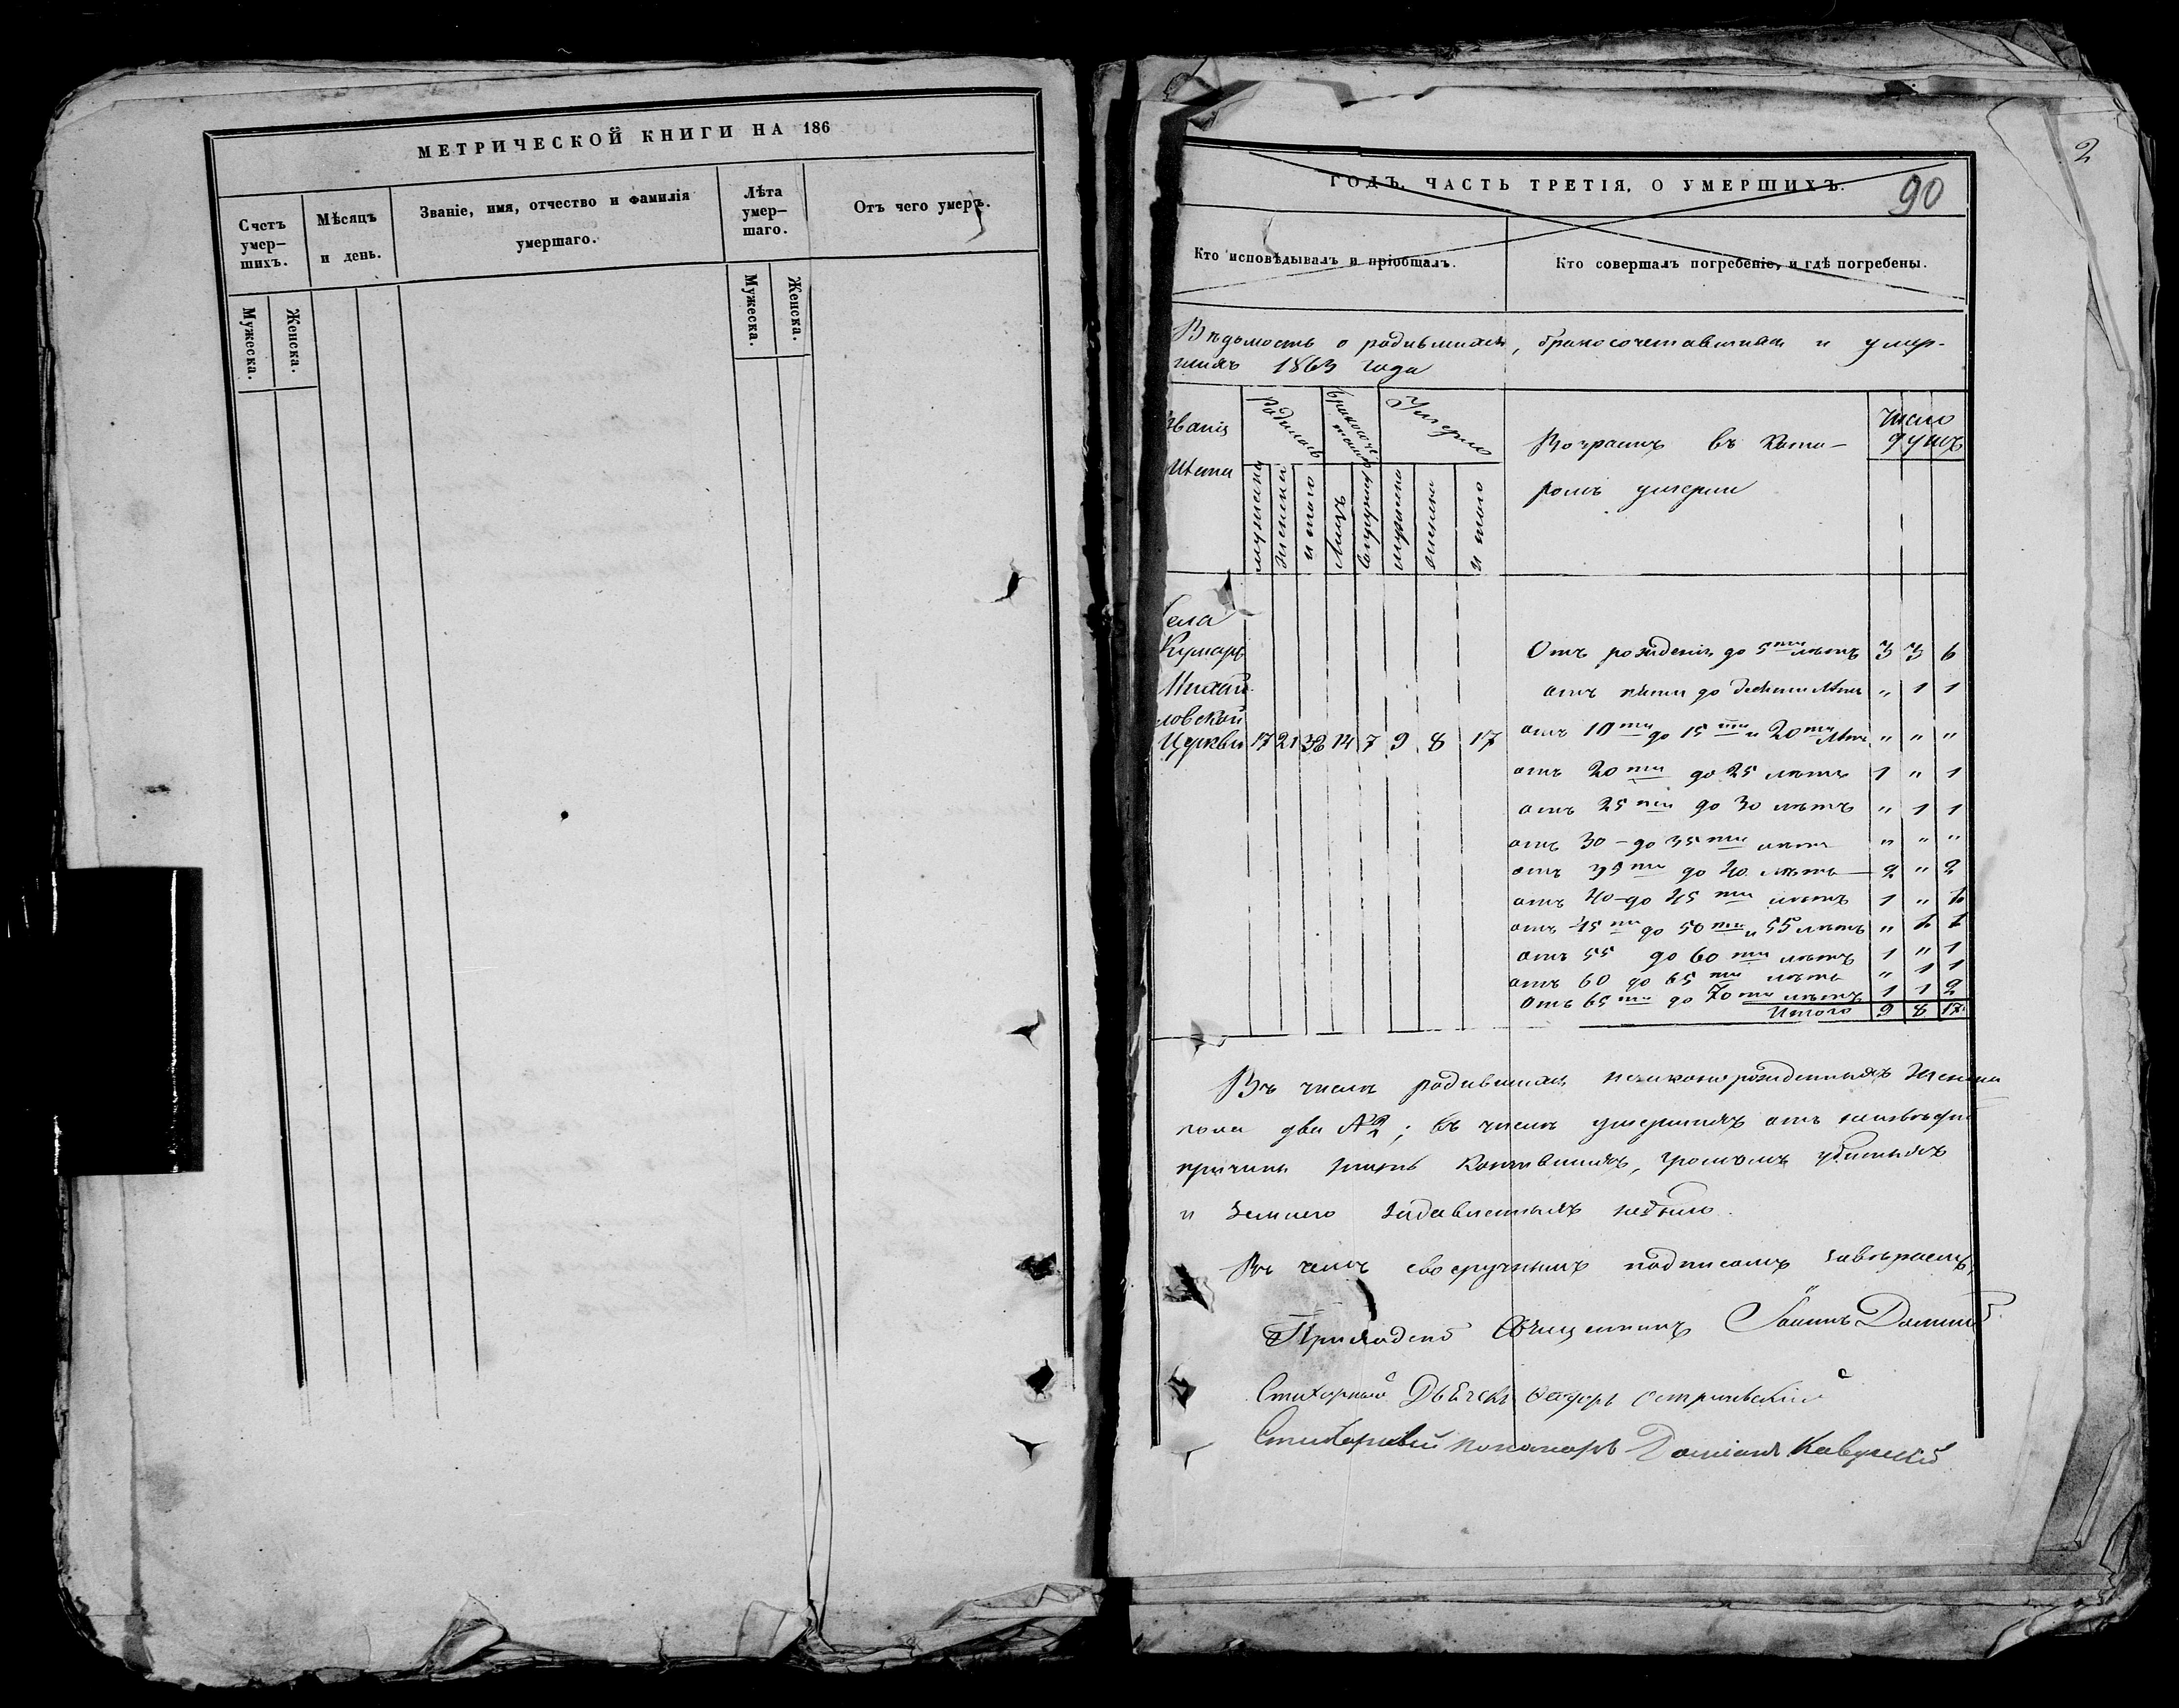 МЕТРИЧЕСКОЙ КНИГИ НА 186
Счетъ умер-шихъ.
Мѣсяцъ и день.
Званіе, имя, отчество и фамилія умершаго.
Лѣта умер-шаго.
Отъ чего умеръ.
Мужеска.
Женска.
Мужеска.
Женска.
2
ГОДЪ, ЧАСТЬ ТРЕТІЯ, О УМЕРШИХЪ.
90
Кто исповѣдывалъ и пріобщалъ.
Кто совершалъ погребеніе, и гдѣ погребены.
Вѣдомость о родившихся, бракосочетавшихся и умер-
шихъ 1863 года
званія
мѣста
Родилось
Умерло
Возрастъ въ кото-
ромъ умерли
Число
душъ
мужеска
женска
итого
лицъ
мужеска
женска
итого
Села
Михай
ловской
Церкви 17 21 38 14 7 9 8 17
Отъ рожденія до 5ти лѣтъ 3 3 6
отъ пяти до десяти лѣтъ " 1 1
отъ 10ти до 15ти и 20ти лѣтъ " " "
отъ 20ти до 25 лѣтъ 1 " 1
отъ 25ти до 30 лѣтъ " 1 1
отъ 30 - до 35ти лѣтъ " " "
отъ 35ти до 40 лѣтъ 2 " 2
отъ 40 - до 45ти лѣтъ 1 " 1
отъ 45ти до 50ти и 55 лѣтъ " 1 1
отъ 55 до 60ти лѣтъ 1 " 1
отъ 60 до 65ти лѣтъ " 1 1
Отъ 65ти до 70ти лѣтъ 1 1 2
Итого 9 8 17
Въ числѣ родившихся незаконорожденныхъ женска
пола два № 2; въ числѣ умершихъ отъ
причины жизнь кончившихъ, громомъ убитыхъ
и землею задавленныхъ небыло.
Въ чемъ своеручнымъ подписомъ завѣряемъ,
Приходскій Священникъ Іоаннъ
Стихарный Дьячекъ
Стихарный пономарь Даміанъ